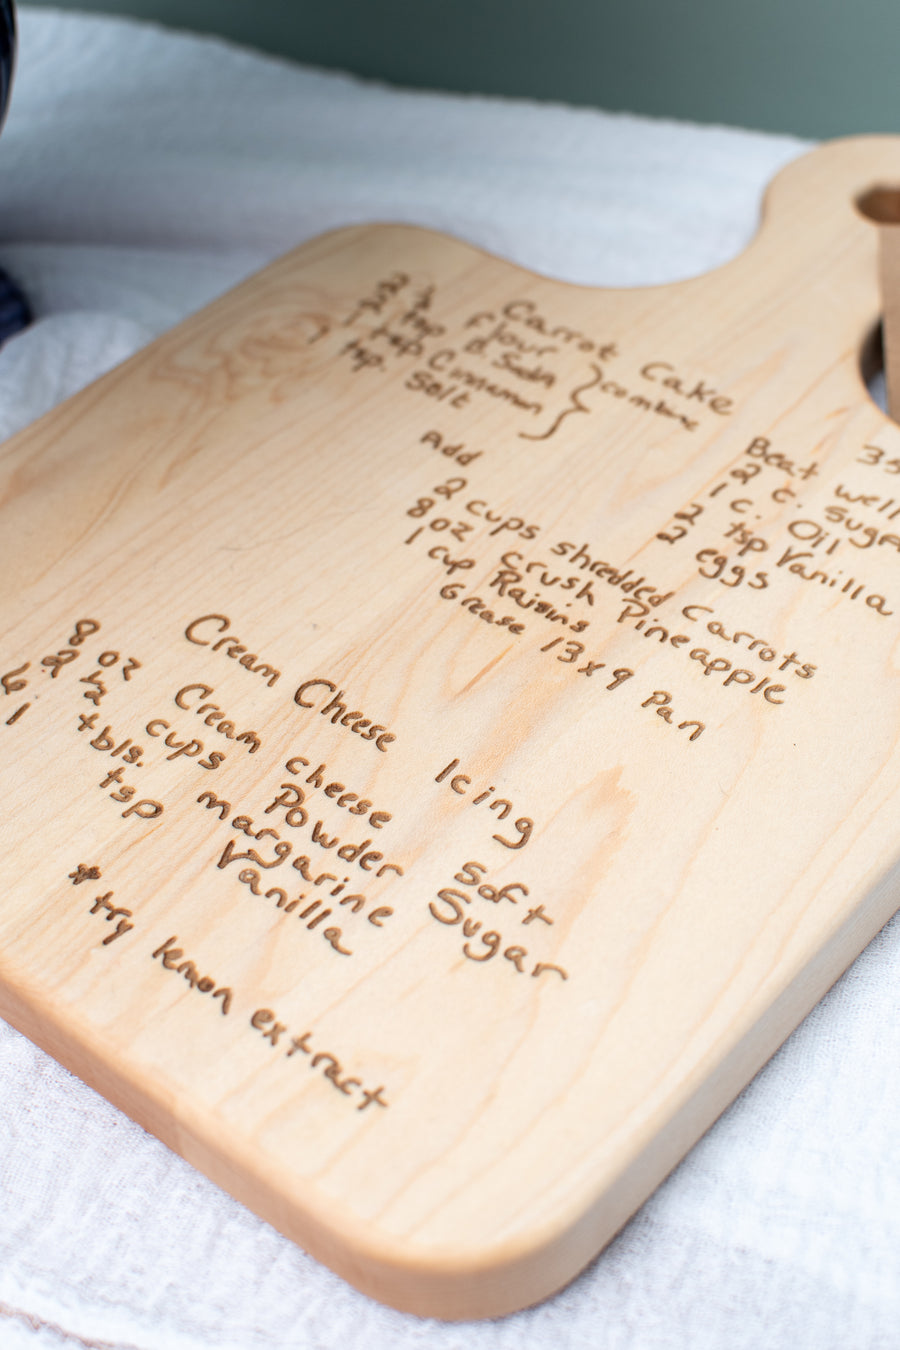 Carrot Cake
flour
tsp B. Soda
tsp Cinnamon } combine
tsp. Salt
Add
2 cups shredded Carrots
8 oz crush Pineapple
1 cup Raisins
Grease 13x9 Pan
Beat well
2 c.
1 c. Oil
2 tsp Vanilla
2 eggs
Cream Cheese Icing
8 oz Cream cheese Soft
2 ½ cups Powder Sugar
6 tbls. margarine
1 tsp Vanilla
* try lemon extract